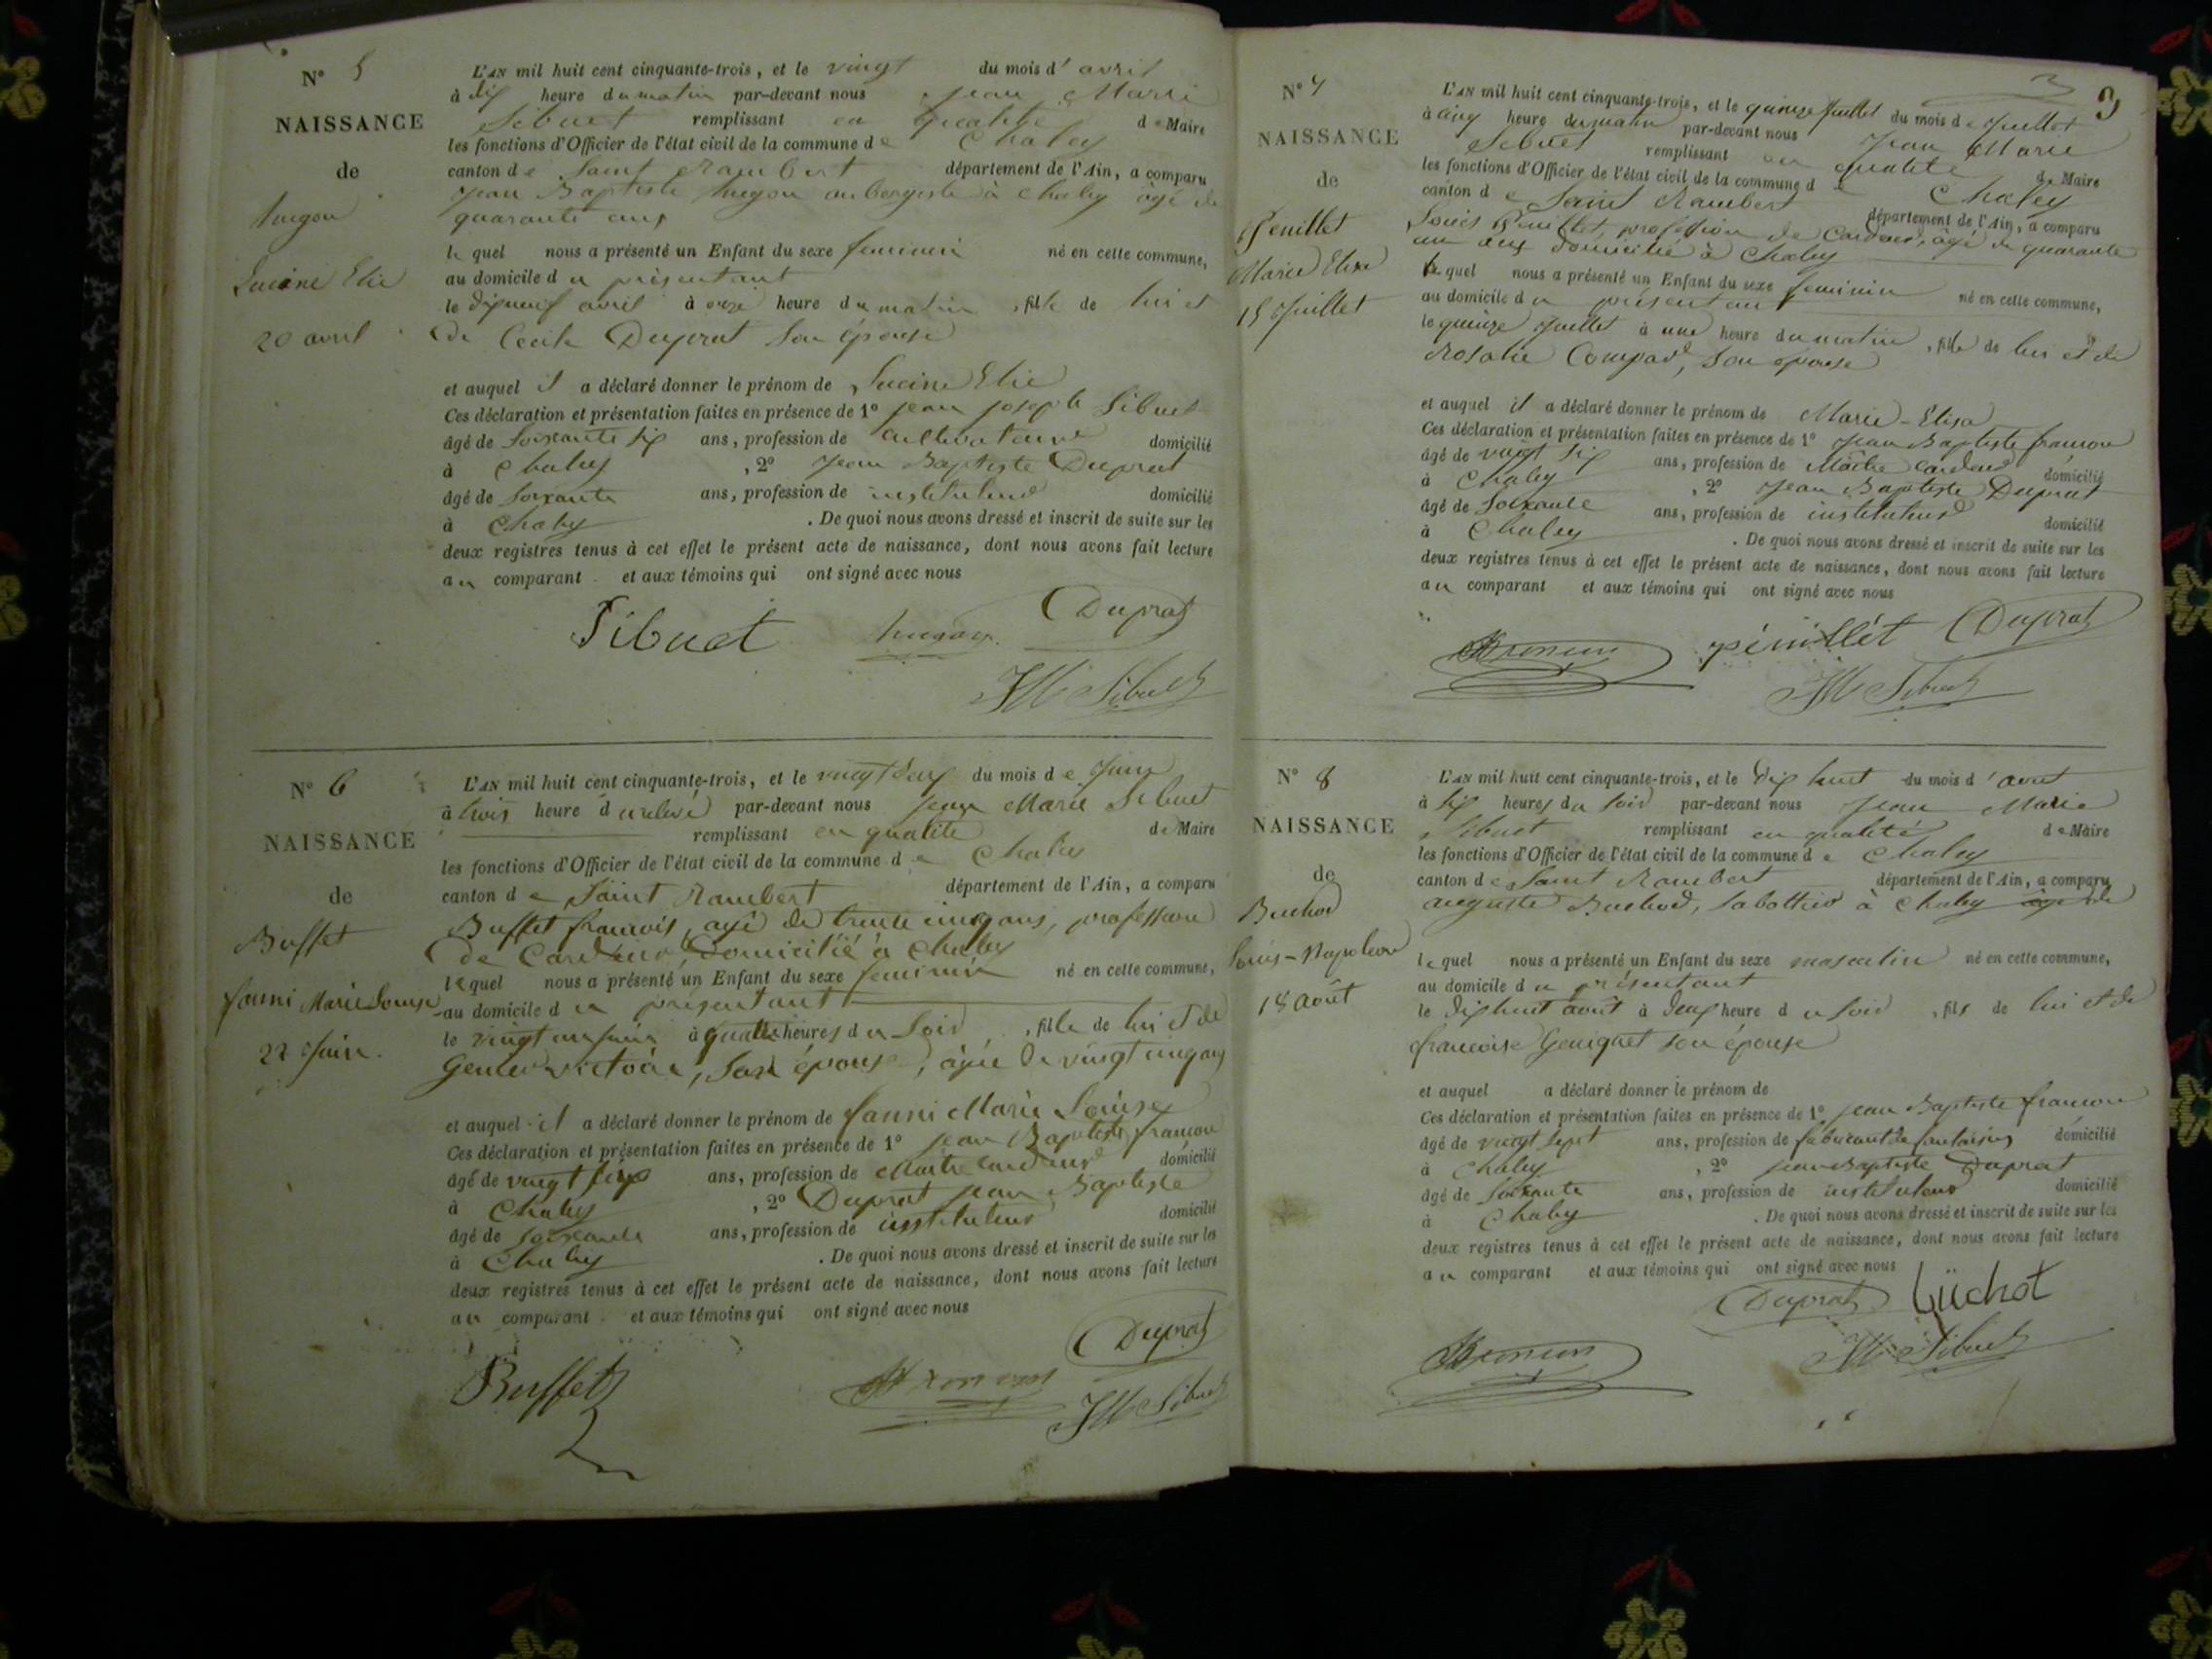 N° 5
NAISSANCE
de
hugon
Lucine Elie
20 avril
L'AN mil huit cent cinquante-trois, et le vingt du mois d' avril
à dix heure du matin par-devant nous Jean Marie
Sibuet remplissant en qualité de Maire
les fonctions d'Officier de l'état civil de la commune de Chaley
canton de Saint Rambert département de l'Ain, a comparu
Jean Baptiste hugon aubergiste à Chaley âgé de
quarante ans
lequel nous a présenté un Enfant du sexe feminin né en cette commune,
au domicile du présentant
le dixneuf avril à onze heure du matin, fille de lui et
de Cecile Duprat son épouse
et auquel il a déclaré donner le prénom de Lucine Elie
Ces déclaration et présentation faites en présence de 1° Jean Joseph Sibuet
âgé de soixante six ans, profession de cultivateur domicilié
à Chaley, 2° Jean Baptiste Duprat
âgé de soixante ans, profession de instituteur domicilié
à Chaley. De quoi nous avons dressé et inscrit de suite sur les
deux registres tenus à cet effet le présent acte de naissance, dont nous avons fait lecture
au comparant et aux témoins qui ont signé avec nous
Sibuet hugon Duprat
JM Sibuet
N° 6
NAISSANCE
de
Buffet
fanni Marie Louise
22 Juin.
L'AN mil huit cent cinquante-trois, et le vingt deux du mois de Juin
à trois heure du relevé par-devant nous Jean Marie Sibuet
remplissant en qualité de Maire
les fonctions d'Officier de l'état civil de la commune de Chaley
canton de Saint Rambert département de l'Ain, a comparu
Buffet francois, agé de trente cinq ans, profession
de Cardeur, domicilié à Chaley
lequel nous a présenté un Enfant du sexe feminin né en cette commune,
au domicile du présentant
le vingt un juin à quatre heures du soir, fille de lui et de
victoire, son épouse, âgée de vingt cinq ans
et auquel il a déclaré donner le prénom de fanni Marie Louise
Ces déclaration et présentation faites en présence de 1° Jean Baptiste francon
âgé de vingt ans, profession de Maitre cardeur domicilié
à Chaley, 2° Duprat Jean Baptiste
âgé de soixante ans, profession de instituteur domicilié
à Chaley. De quoi nous avons dressé et inscrit de suite sur les
deux registres tenus à cet effet le présent acte de naissance, dont nous avons fait lecture
au comparant et aux témoins qui ont signé avec nous
Duprat
Buffet
JM Sibuet
3
N° 7
NAISSANCE
de
Penillet
Marie Elisa
15 Juillet
L'AN mil huit cent cinquante-trois, et le quinze juillet du mois de Juillet
à cinq heure du matin par-devant nous Jean Marie
Sibuet remplissant en qualité de Maire
les fonctions d'Officier de l'état civil de la commune de Chaley
canton de Saint Rambert département de l'Ain, a comparu
Louis Penillet, profession de Cardeur, âgé de quarante
un ans domicilié à Chaley
lequel nous a présenté un Enfant du sexe feminin né en cette commune,
au domicile du présentant
le quinze Juillet à une heure du matin, fille de lui et de
Rosalie son epouse
et auquel il a déclaré donner le prénom de Marie-Elisa
Ces déclaration et présentation faites en présence de 1° Jean Baptiste francon
âgé de vingt six ans, profession de Maître Cardeur domicilié
à Chaley, 2° Jean Baptiste Duprat
âgé de soixante ans, profession de instituteur domicilié
à Chaley. De quoi nous avons dressé et inscrit de suite sur les
deux registres tenus à cet effet le présent acte de naissance, dont nous avons fait lecture
au comparant et aux témoins qui ont signé avec nous
penillét Duprat
JM Sibuet
N° 8
NAISSANCE
de
Buchod
Louis-Napoleon
18 août
L'AN mil huit cent cinquante-trois, et le dix huit du mois d' aout
à six heures du soir par-devant nous Jean Marie
Sibuet remplissant en qualité de Maire
les fonctions d'Officier de l'état civil de la commune de Chaley
canton de Saint Rambert département de l'Ain, a comparu
auguste Buchod, sabottier à Chaley agé de
lequel nous a présenté un Enfant du sexe masculin né en cette commune,
au domicile du présentant
le dixhuit août à deux heure du soir, fils de lui et de
francoise son épouse
et auquel a déclaré donner le prénom de
Ces déclaration et présentation faites en présence de 1° Jean Baptiste francon
âgé de vingt sept ans, profession de fabricant de fantaisies domicilié
à Chaley, 2° Jean Baptiste Duprat
âgé de soixante ans, profession de instituteur domicilié
à Chaley. De quoi nous avons dressé et inscrit de suite sur les
deux registres tenus à cet effet le présent acte de naissance, dont nous avons fait lecture
au comparant et aux témoins qui ont signé avec nous
Duprat büchot
JM Sibuet